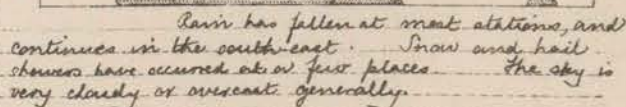 Rain has fallen at most stations, and
continues in the south-east. Snow and hail
showers have occurred at a few places. The sky is
very cloudy or overcast generally.